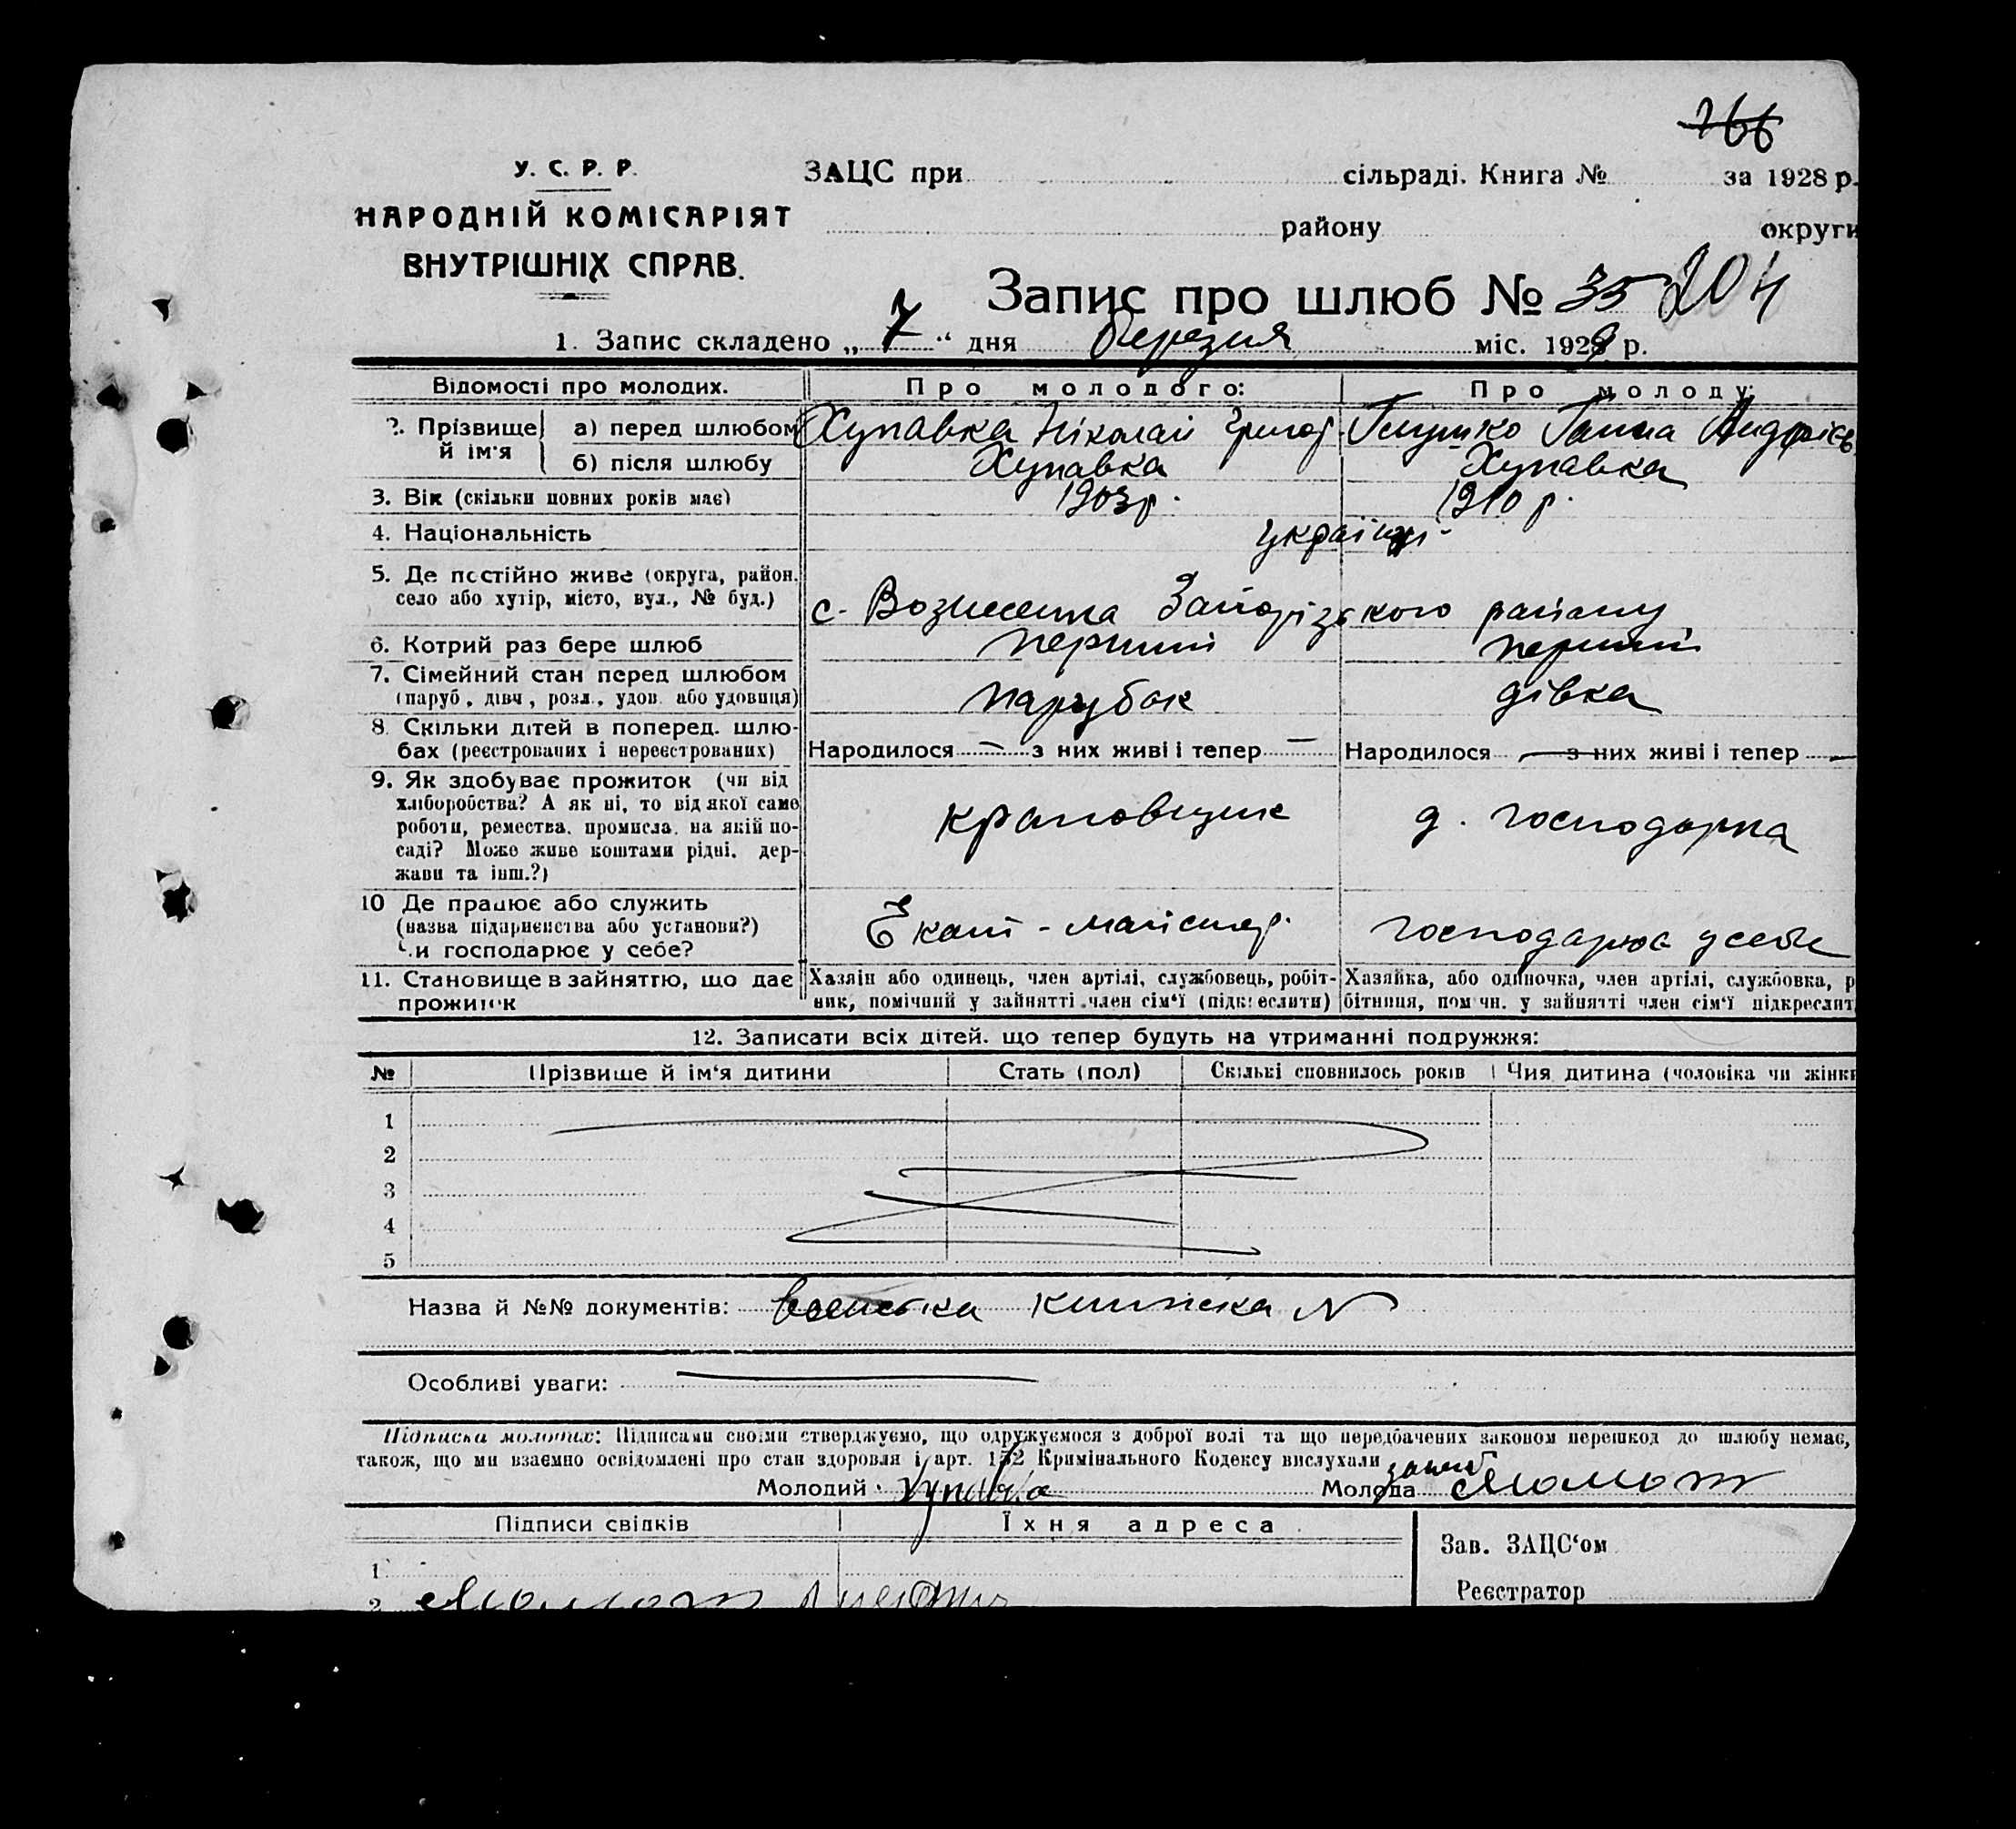 266
У. С. Р. Р.
ЗАЦС при сільраді. Книга № за 1928 р.
НАРОДНІЙ КОМІСАРІЯТ
ВНУТРІШНІХ СПРАВ.
району округи
Запис про шлюб № 35 204
1. Запис складено „ 7 “ дня березня міс. 1929 р.
Відомості про молодих. Про молодого: Про молоду:
2. Прізвище й ім'я
а) перед шлюбом Хупавка Ніколай Григор. Глушко Ганна Андрієв
б) після шлюбу Хупавка Хупавка
3. Вік (скільки повних років має) 1903 р. 1910 р.
4. Національність українці
5. Де постійно живе (округа, район,
село або хутір, місто, вул., № буд.) с. Вознесенка Запорізького району
6. Котрий раз бере шлюб перший перший
7. Сімейний стан перед шлюбом
(паруб., дівч., розл., удов. або удовиця) парубок дівка
8. Скільки дітей в поперед. шлю-
бах (реєстрованих і нереєстрованих) Народилося — з них живі і тепер — Народилося — з них живі і тепер —
9. Як здобуває прожиток (чи від
хліборобства? А як ні, то від якої саме
роботи, ремества, промисла, на якій по-
саді? Може живе коштами рідні, дер-
жави та інш.?)
крановщик д. господарка
10 Де працює або служить
(назва підприємства або установи?)
Чи господарює у себе?
Екат - майстер. господарює у себе
11. Становище в зайняттю, що дає
прожиток
Хазяїн або одинець, член артілі, службовець, робіт-
ник, помічний у зайнятті член сім‘ї (підкреслити)
Хазяйка, або одиночка, член артілі, службовка, р
бітниця, пом чн. у зайнятті член сім‘ї підкреслит
12. Записати всіх дітей, що тепер будуть на утриманні подружжя:
№ Прізвище й ім‘я дитини Стать (пол) Скількі сповнилось років Чия дитина (чоловіка чи жінки
1
2
3
4
5
Назва й №№ документів: воєнска книжка N
Особливі уваги:
Підписка молодих: Підписами своїми стверджуємо, що одружуємося з доброї волі та що передбачених законом перешкод до шлюбу немає,
також, що ми взаємно освідомлені про стан здоровля і арт. 152 Кримінального Кодексу вислухали
Молодий Хупавка Молода Момот
Підписи свідків Їхня адреса
Зав. ЗАЦС‘ом
1
Реєстратор
2 Момот